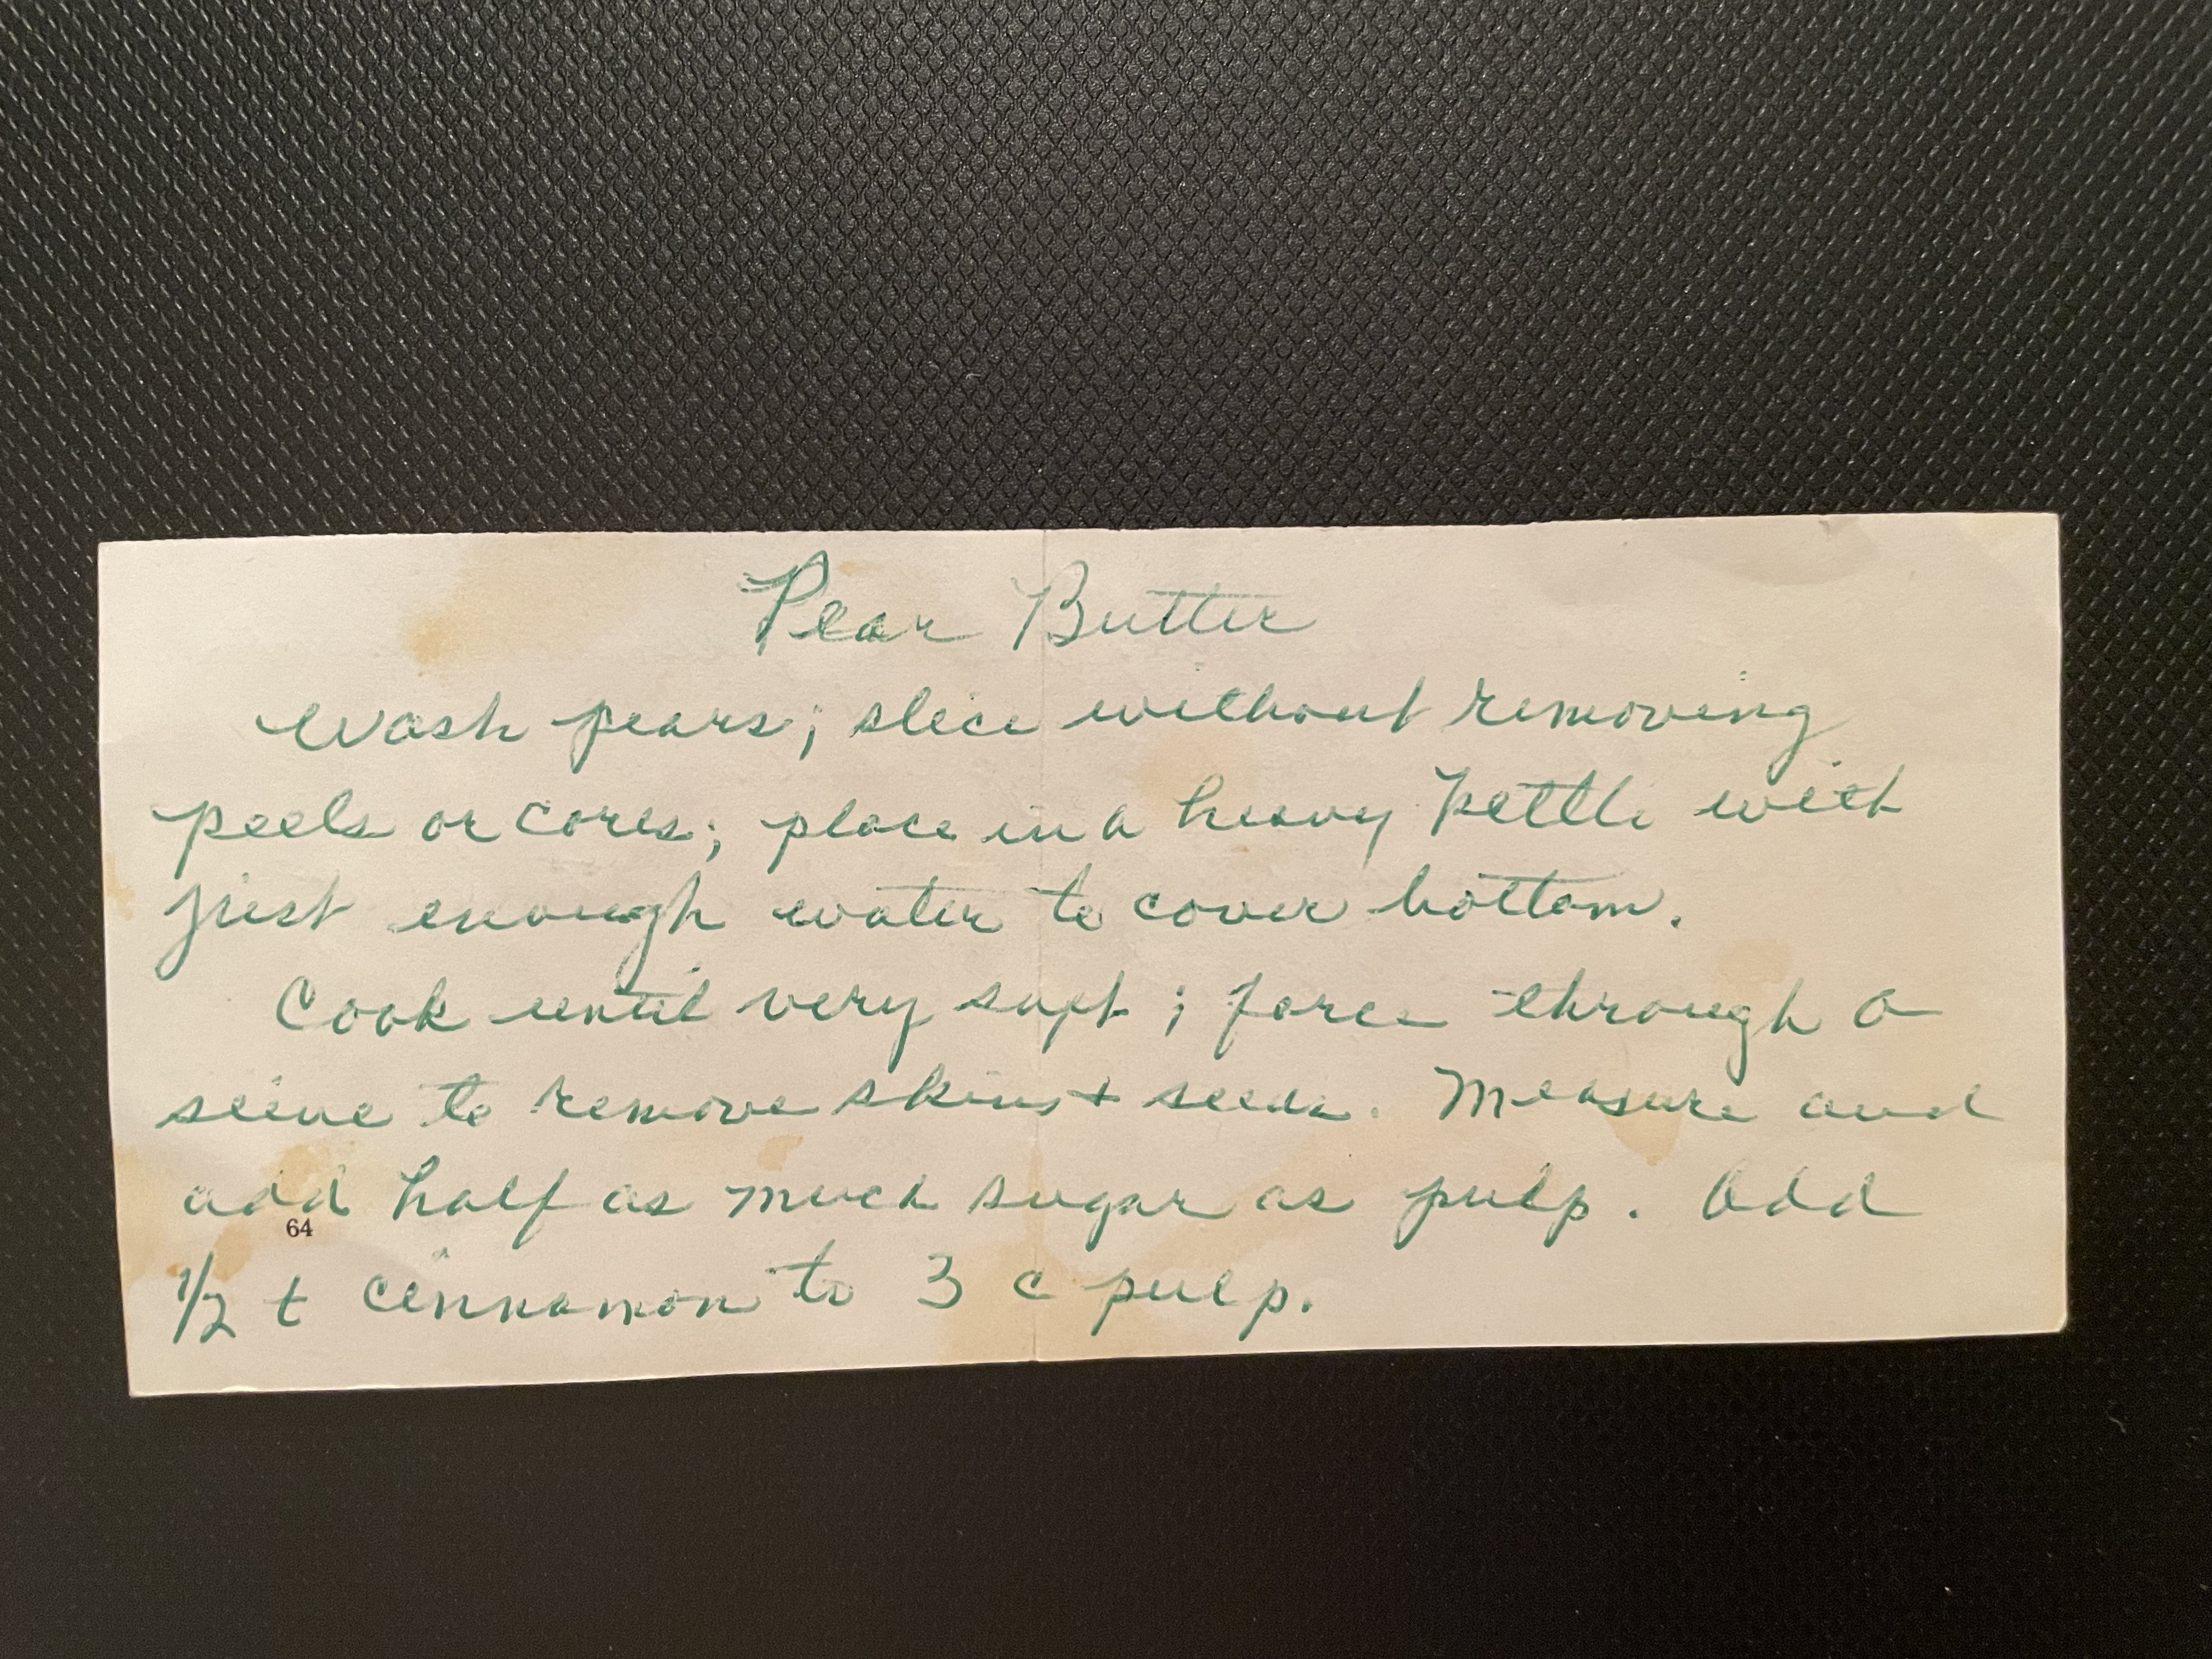 Pear Butter
Wash pears; slice without removing
peels or cores; place in a heavy kettle with
just enough water to cover bottom.
Cook until very soft; force through a
seive to remove skins + seeds. Measure and
add half as much sugar as pulp. Add
64
1/2 t cinnamon to 3 c pulp.